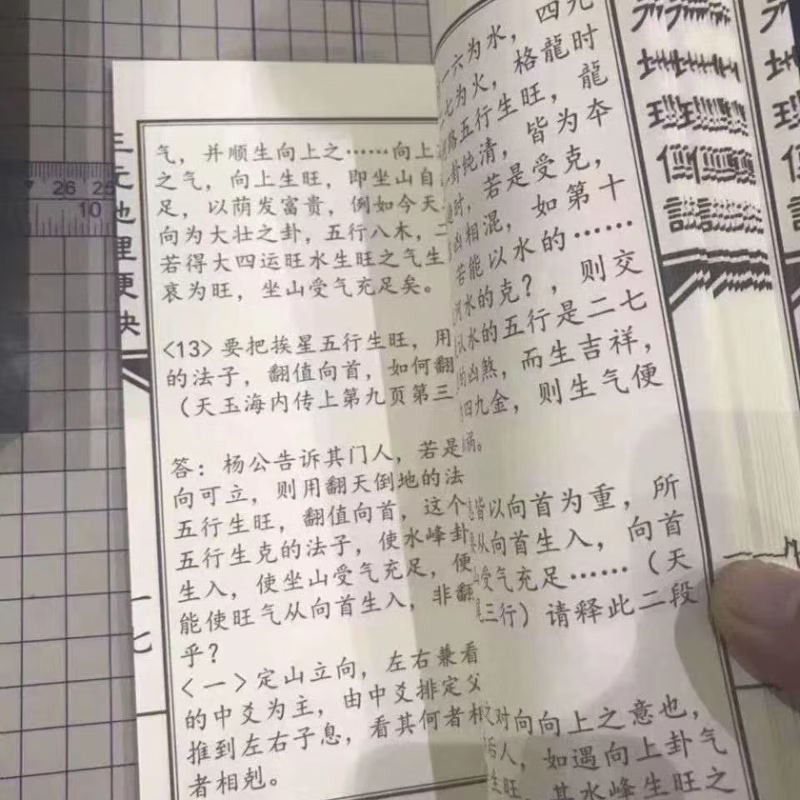 三元地理便诀
一七
气，并顺生向上之……向上
之气，向上生旺，即坐山自
足，以荫发富贵，例如今天
向为大壮之卦，五行八木，二
若得大四运旺水生旺之气生
哀为旺，坐山受气充足矣。
<13>要把挨星五行生旺，用
的法子，翻值向首，如何翻
（天玉海内传上第九页第三
答：杨公告诉其门人，若是
向可立，则用翻天倒地的法
五行生旺，翻值向首，这个
五行生克的法子，使水峰卦
生入，使坐山受气充足，便
能使旺气从向首生入，非翻
乎？
<一>定山立向，左右兼看
的中爻为主，由中爻排定父
推到左右子息，看其何者相
者相剋。
一六为水，四九
七为火，格龍时
五行生旺，龍
卦纯清，皆为夲
时，若是受克，
凶相混，如第十
若能以水的……
水的克？，则交
以水的五行是二七
的凶煞，而生吉祥，
四九金，则生气便
皆以向首为重，所
从向首生入，向首
受气充足……（天
三行）请释此二段
对向向上之意也，
后人，如遇向上卦气
生旺，其水峰生旺之